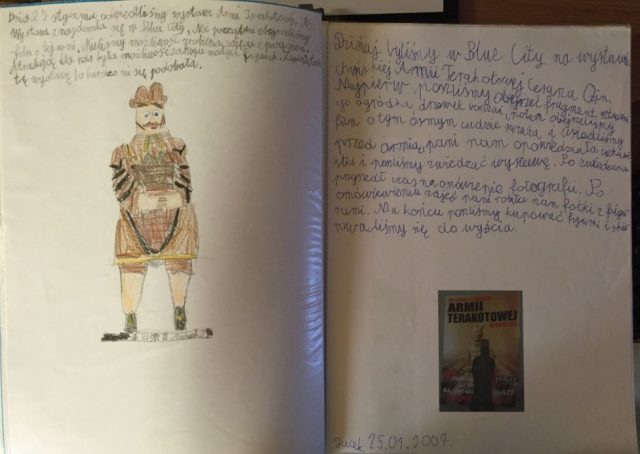 Dnia 25 stycznia odwiedziliśmy wystawę Armii Terakotowej.
Wystawa znajdowała się w Blue City. Na początku obejrzeliśmy
film o tej armii. Mieliśmy możliwość zrobienia zdjęcia z
Atrakcją dla nas była możliwość zakupu
tę wystawę bo bardzo mi się podobała.
Michał
Dzisiaj byliśmy w Blue City na wystawie
chińskiej Armii Terakotowej Cesarza Qin.
Najpierw poszliśmy obejrzeć fragment
go ogródka drzewek bonzai, potem obejrzeliśmy
film o tym ósmym cudzie świata i usiedliśmy
przed armią, pani nam opowiedziała
stki i poszliśmy zwiedzać wystawę. Po zwiedzaniu
przyszedł czas na omówienie fotografii. Po
omówieniu zdjęć pani robiła nam fotki z figu
rami. Na końcu poszliśmy kupować figurki i
waliśmy się do wyjścia.
ARMII
TERAKOTOWEJ
Jacek 25.01.2007.